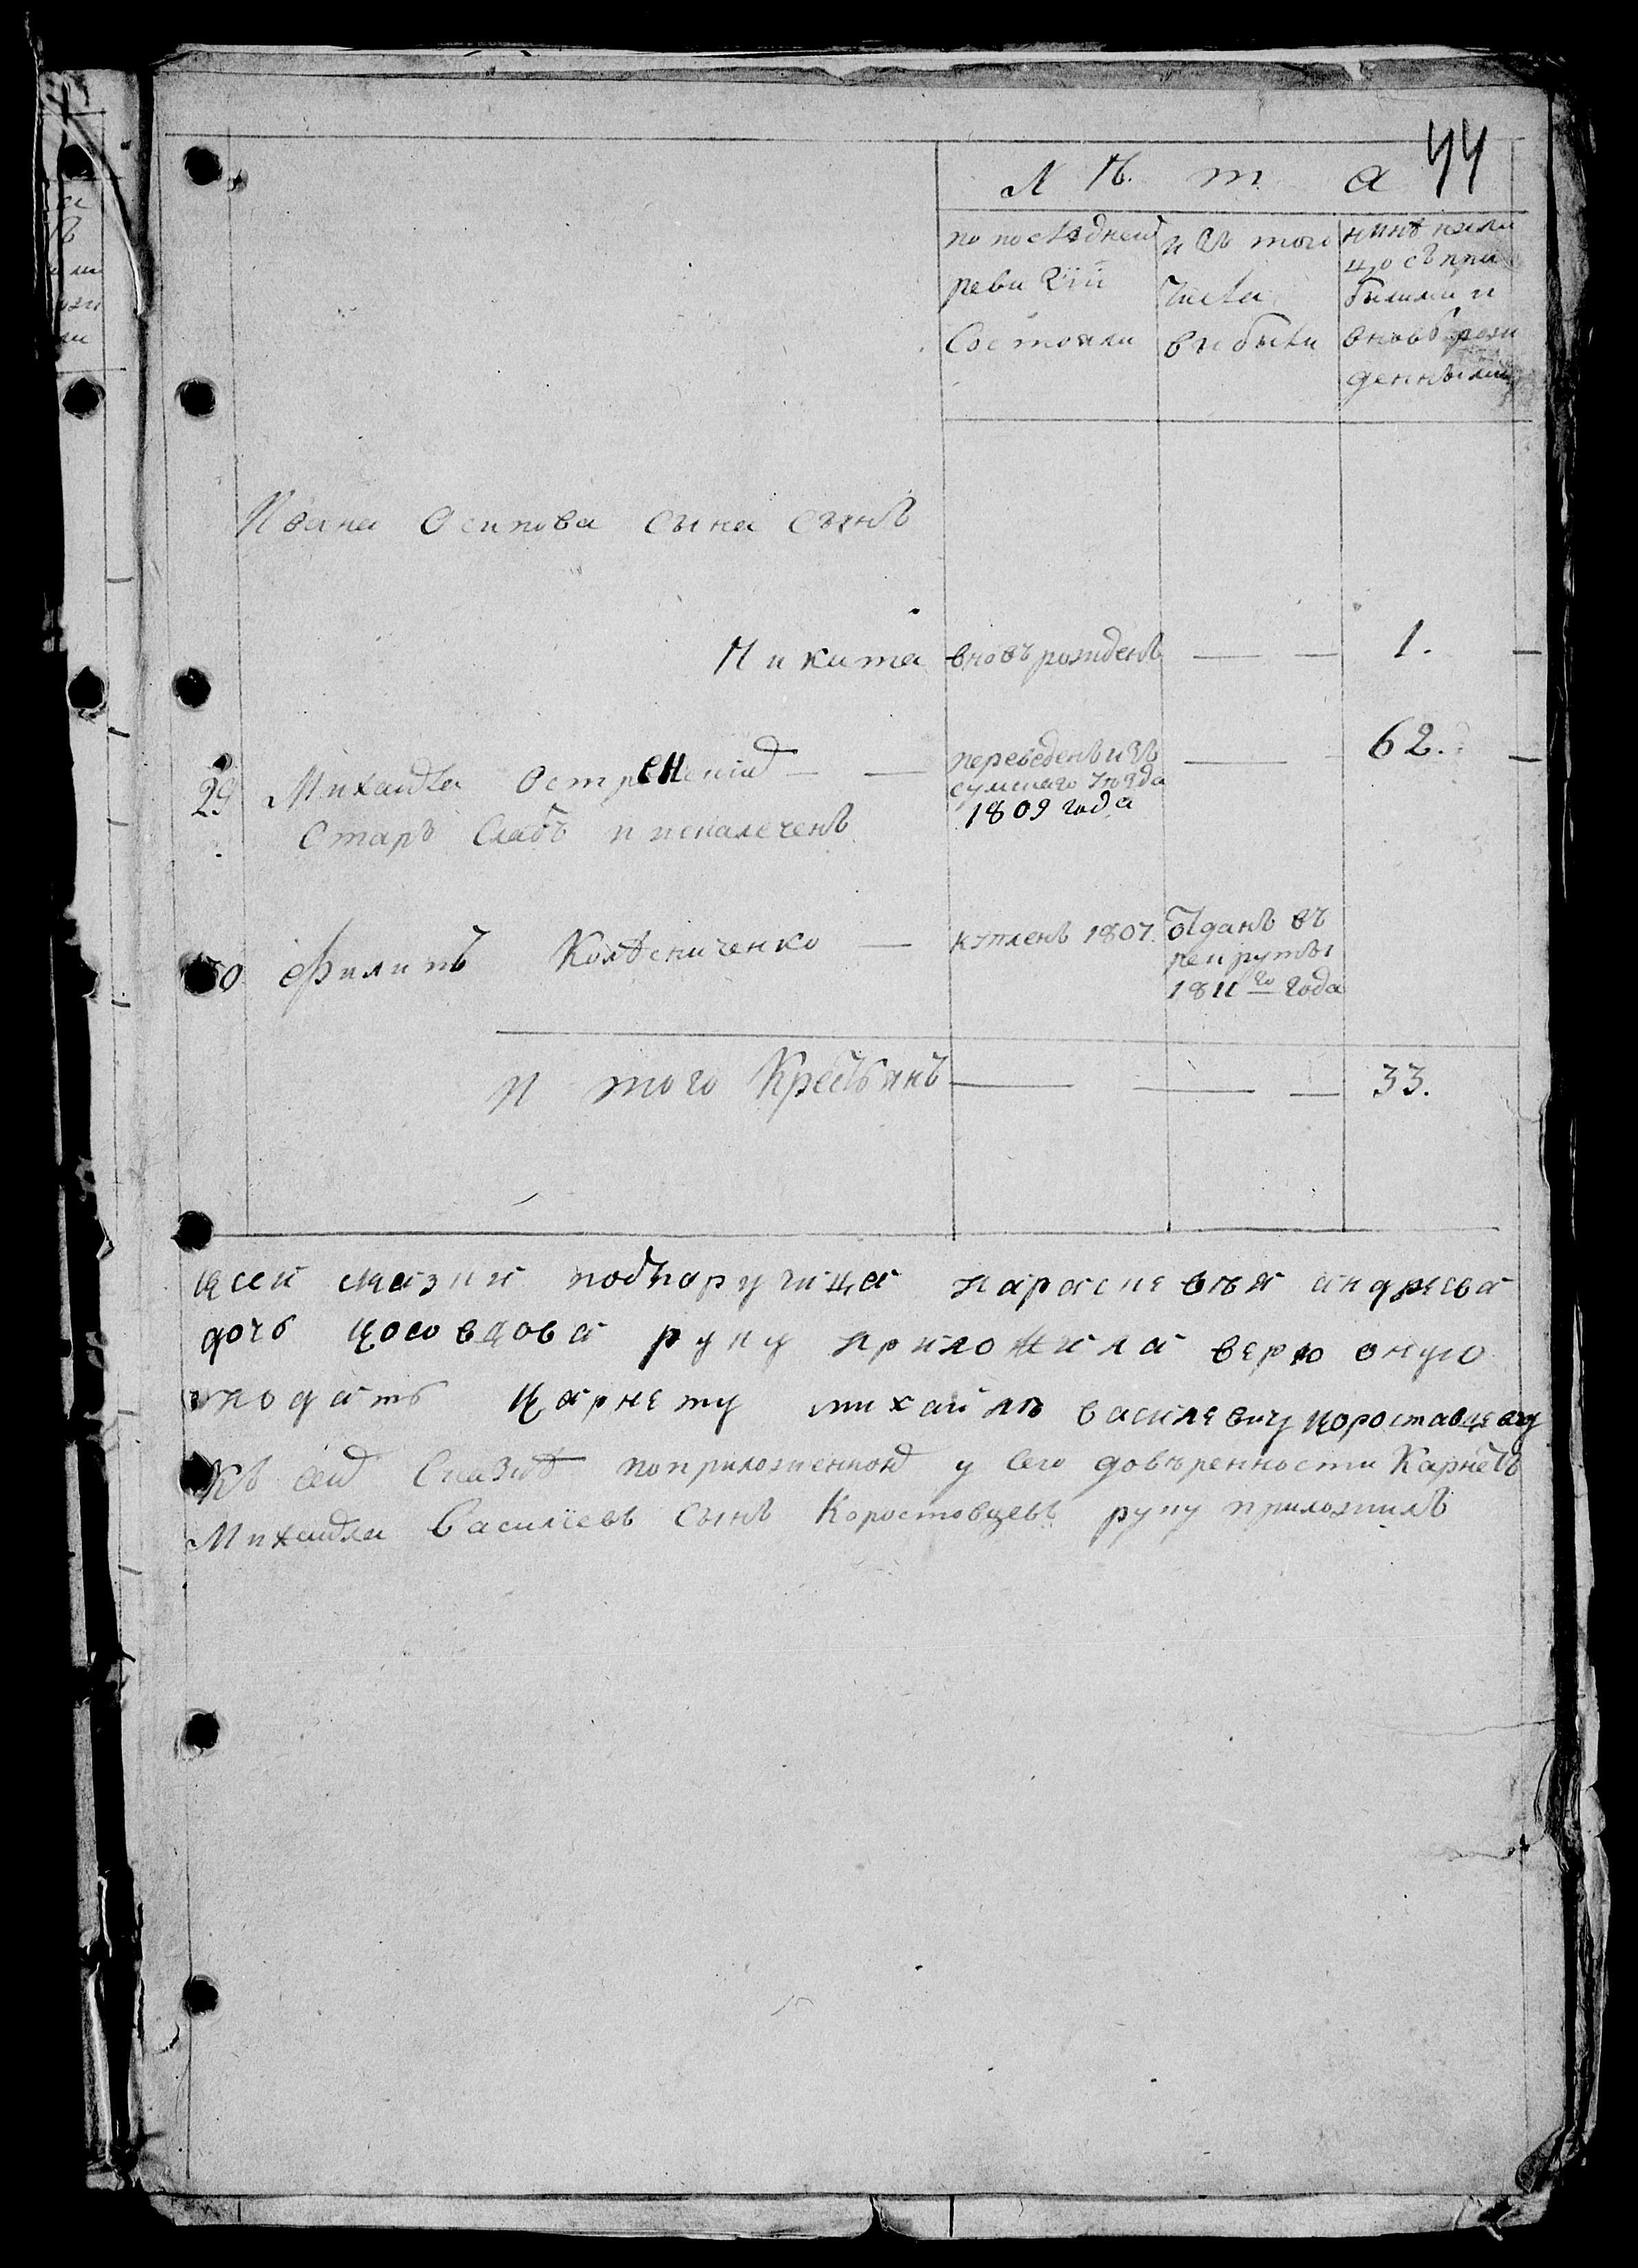 44
Лѣта
по последней ревизiи состояли
изъ того числа выбыли
нынѣ налицо съ прибылыми и вновь рожденными
Ивана Осипова сына сынъ
Никита вновь рожденъ — — 1.
29 Михайла Остренский — — переведенъ изъ сумскаго уѣзда 1809 года — 62.
Старъ слабъ и искалеченъ
30 Филипъ Колѣсниченко — купленъ 1807. отданъ въ рекруты 1811го года
И того Крестьянъ — — — 33.
ксей сказки подпоручица параскевъя андреева
дочь руку приложила верю оную
подать карнету михайлѣ василевичу коростовцеву
Къ сей сказкѣ поприложенной у сего довѣренности Карнетъ
Михайла Васильевъ сынъ Коростовцевъ руку приложилъ